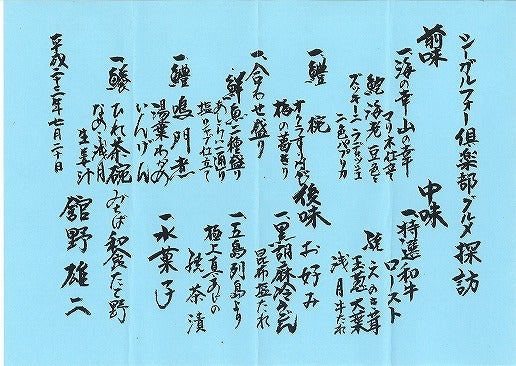 シーガルフォー倶楽部グルメ探訪
前味
一、海の幸山の幸
マリネ仕立
鮑 海老 豆色々
ズッキーニ ラディッシュ
二色パプリカ
一、鱧 椀
オクラすり流し
梅の葛きり
一、合わせ盛り
鮮魚二種盛り
あしらい一通り
塩シャブ仕立て
一、鱧 鳴門煮
湯葉 わかめ
いんげん
一、鱶ひれ茶碗
なめ茸 浅月
生姜汁
中味
一、特選和牛
ロースト
焼えのき茸
玉葱 大葉
浅月 牛たれ
後味
お好み
一、黒胡麻冷うどん
昆布塩たれ
一、五島列島より
極上真あじの
焼茶漬
一、水菓子
みちば和食たて野
舘野雄二
平成二十二年七月二十日